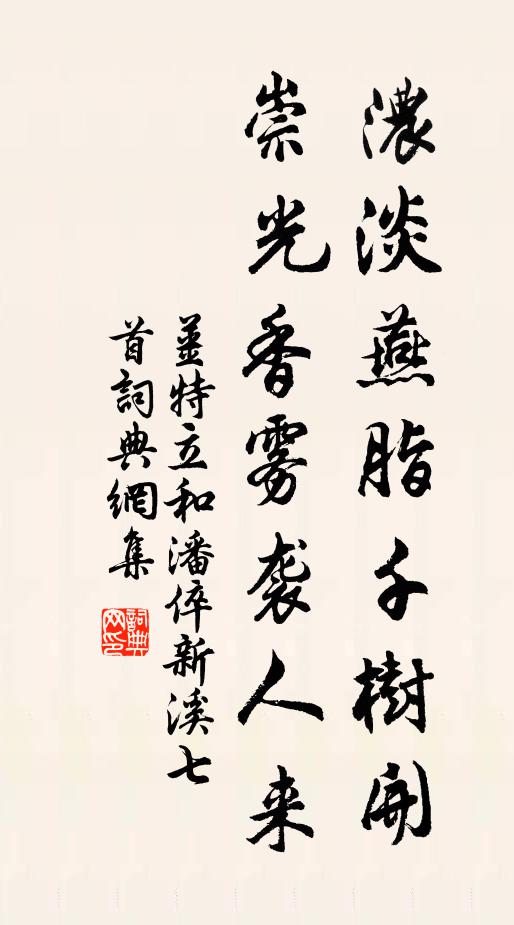 濃淡燕脂千樹開
崇光香雾袭人来
姜特立和潘倅新溪七
首詞典網集
詞典网印